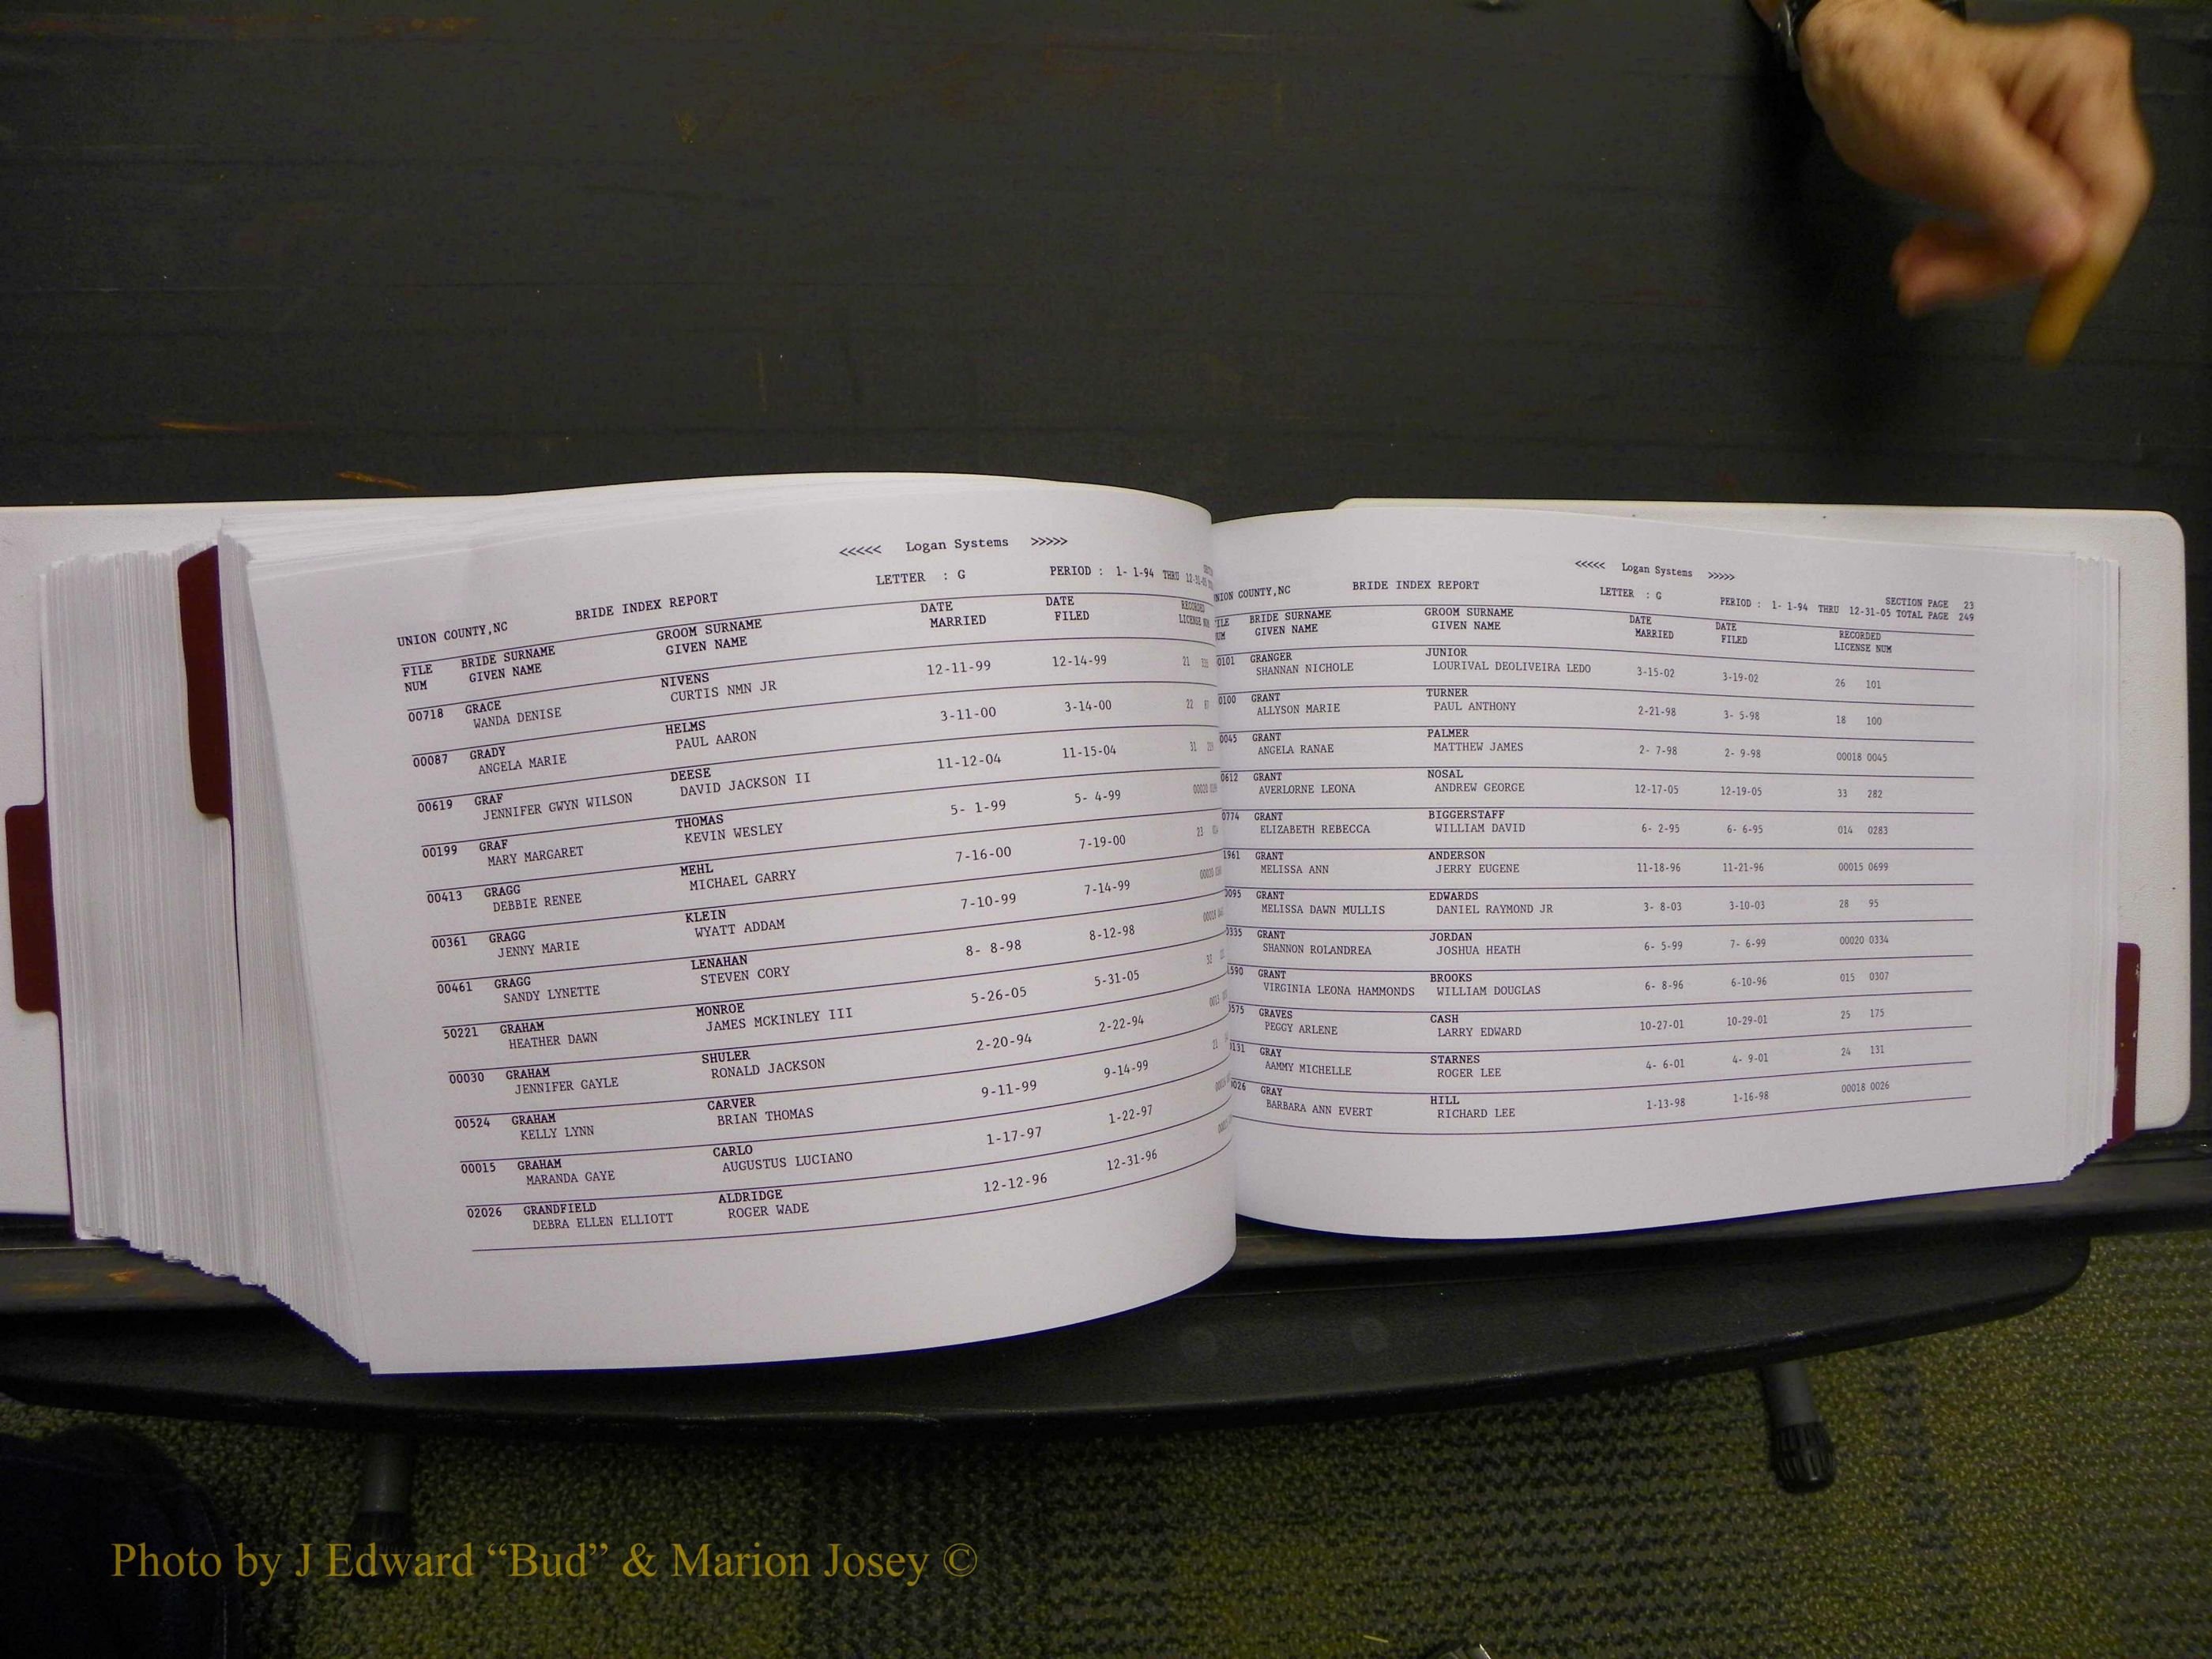 <<<<< Logan Systems >>>>>
UNION COUNTY,NC BRIDE INDEX REPORT LETTER : G PERIOD : 1- 1-94 THRU
FILE BRIDE SURNAME GROOM SURNAME DATE DATE RECORDED
NUM GIVEN NAME GIVEN NAME MARRIED FILED LICENSE
00718 GRACE NIVENS 12-11-99 12-14-99 21
WANDA DENISE CURTIS NMN JR
00087 GRADY HELMS 3-11-00 3-14-00 22
ANGELA MARIE PAUL AARON
00619 GRAF DEESE 11-12-04 11-15-04 31
JENNIFER GWYN WILSON DAVID JACKSON II
00199 GRAF THOMAS 5- 1-99 5- 4-99
MARY MARGARET KEVIN WESLEY
00413 GRAGG MEHL 7-16-00 7-19-00 23
DEBBIE RENEE MICHAEL GARRY
00361 GRAGG KLEIN 7-10-99 7-14-99
JENNY MARIE WYATT ADDAM
00461 GRAGG LENAHAN 8- 8-98 8-12-98
SANDY LYNETTE STEVEN CORY
50221 GRAHAM MONROE 5-26-05 5-31-05
HEATHER DAWN JAMES MCKINLEY III
00030 GRAHAM SHULER 2-20-94 2-22-94
JENNIFER GAYLE RONALD JACKSON
00524 GRAHAM CARVER 9-11-99 9-14-99 21
KELLY LYNN BRIAN THOMAS
00015 GRAHAM CARLO 1-17-97 1-22-97
MARANDA GAYE AUGUSTUS LUCIANO
02026 GRANDFIELD ALDRIDGE 12-12-96 12-31-96
DEBRA ELLEN ELLIOTT ROGER WADE
<<<<< Logan Systems >>>>>
NION COUNTY,NC BRIDE INDEX REPORT LETTER : G SECTION PAGE 23
PERIOD : 1- 1-94 THRU 12-31-05 TOTAL PAGE 249
ILE BRIDE SURNAME GROOM SURNAME DATE DATE RECORDED
UM GIVEN NAME GIVEN NAME MARRIED FILED LICENSE NUM
0101 GRANGER JUNIOR 3-15-02 3-19-02 26 101
SHANNAN NICHOLE LOURIVAL DEOLIVEIRA LEDO
0100 GRANT TURNER 2-21-98 3- 5-98 18 100
ALLYSON MARIE PAUL ANTHONY
0045 GRANT PALMER 2- 7-98 2- 9-98 00018 0045
ANGELA RANAE MATTHEW JAMES
0612 GRANT NOSAL 12-17-05 12-19-05 33 282
AVERLORNE LEONA ANDREW GEORGE
0774 GRANT BIGGERSTAFF 6- 2-95 6- 6-95 014 0283
ELIZABETH REBECCA WILLIAM DAVID
1961 GRANT ANDERSON 11-18-96 11-21-96 00015 0699
MELISSA ANN JERRY EUGENE
0095 GRANT EDWARDS 3- 8-03 3-10-03 28 95
MELISSA DAWN MULLIS DANIEL RAYMOND JR
0335 GRANT JORDAN 6- 5-99 7- 6-99 00020 0334
SHANNON ROLANDREA JOSHUA HEATH
1590 GRANT BROOKS 6- 8-96 6-10-96 015 0307
VIRGINIA LEONA HAMMONDS WILLIAM DOUGLAS
0575 GRAVES CASH 10-27-01 10-29-01 25 175
PEGGY ARLENE LARRY EDWARD
0131 GRAY STARNES 4- 6-01 4- 9-01 24 131
AAMMY MICHELLE ROGER LEE
0026 GRAY HILL 1-13-98 1-16-98 00018 0026
BARBARA ANN EVERT RICHARD LEE
Photo by J Edward “Bud” & Marion Josey ©